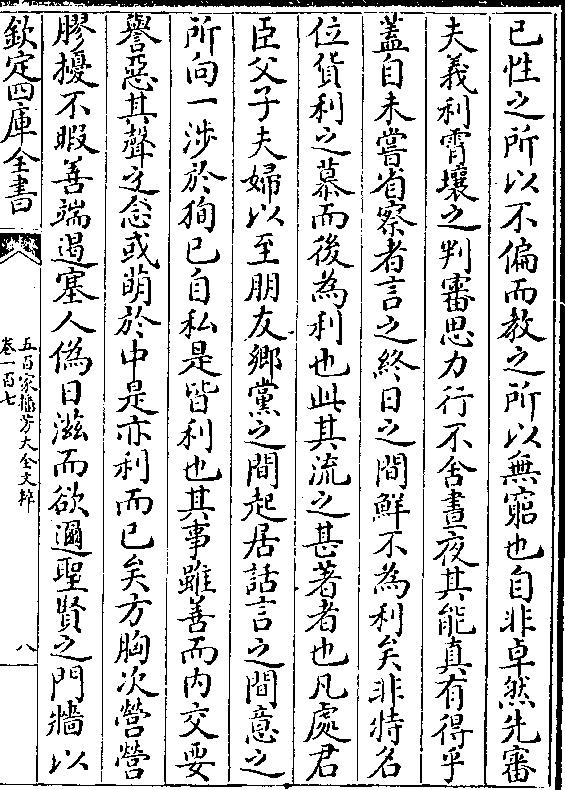 已性之所以不偏而教之所以無窮也自非卓然先審
夫義利霄壤之判審思力行不舍晝夜其能真有得乎
蓋自未嘗省察者言之終日之間鮮不為利矣非特名
位貨利之慕而後為利也此其流之甚著者也凡處君
臣父子夫婦以至朋友鄉黨之間起居話言之間意之
所向一涉於狥已自私是皆利也其事雖善而内交要
譽惡其聲之念或萌於中是亦利而已矣方胸次營營
膠擾不暇善端遏塞人僞日滋而欲邇聖賢之門牆以
欽定四庫全書
五百家播芳大全文粹
卷一百七
八